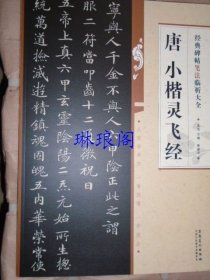 经典碑帖笔法临析大全
唐 小楷灵飞经
寧與人千金不與人六甲陰正此之謂
服二符當叩齒十二通微祝曰
五帝上真六甲玄靈陰陽二炁元始所生總
統萬道撫滅遊精鎮魂固魄五內華榮常使
琳琅阁